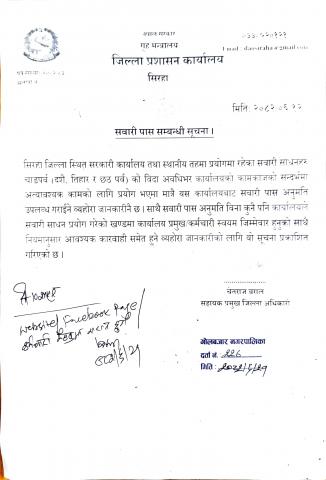 नेपाल सरकार
गृह मन्त्रालय
जिल्ला प्रशासन कार्यालय
सिरहा
०३३-५२०१२२
मिति: २०८२।०६।१२
सवारी पास सम्बन्धी सूचना ।
सिरहा जिल्ला स्थित सरकारी कार्यालय तथा स्थानीय तहमा प्रयोगमा रहेका सवारी साधनहरु
चाडपर्व (दशैं, तिहार र छठ पर्व) को विदा अवधिभर कार्यालयको कामकाजको सन्दर्भमा
अत्यावश्यक कामको लागि प्रयोग भएमा मात्रै यस कार्यालयबाट सवारी पास अनुमति
उपलब्ध गराईने व्यहोरा जानकारीनै छ । साथै सवारी पास अनुमति विना कुनै पनि कार्यालयले
सवारी साधन प्रयोग गरेको खण्डमा कार्यालय प्रमुख/कर्मचारी स्वयम जिम्मेवार हुनुको साथै
नियमानुसार आवश्यक कारवाही समेत हुने व्यहोरा जानकारीको लागि यो सूचना प्रकाशित
गरिएको छ ।
चेतराज बराल
सहायक प्रमुख जिल्ला अधिकारी
Website/Facebook Page/
गोलबजार नगरपालिका
दर्ता नं. २२६
मिति :